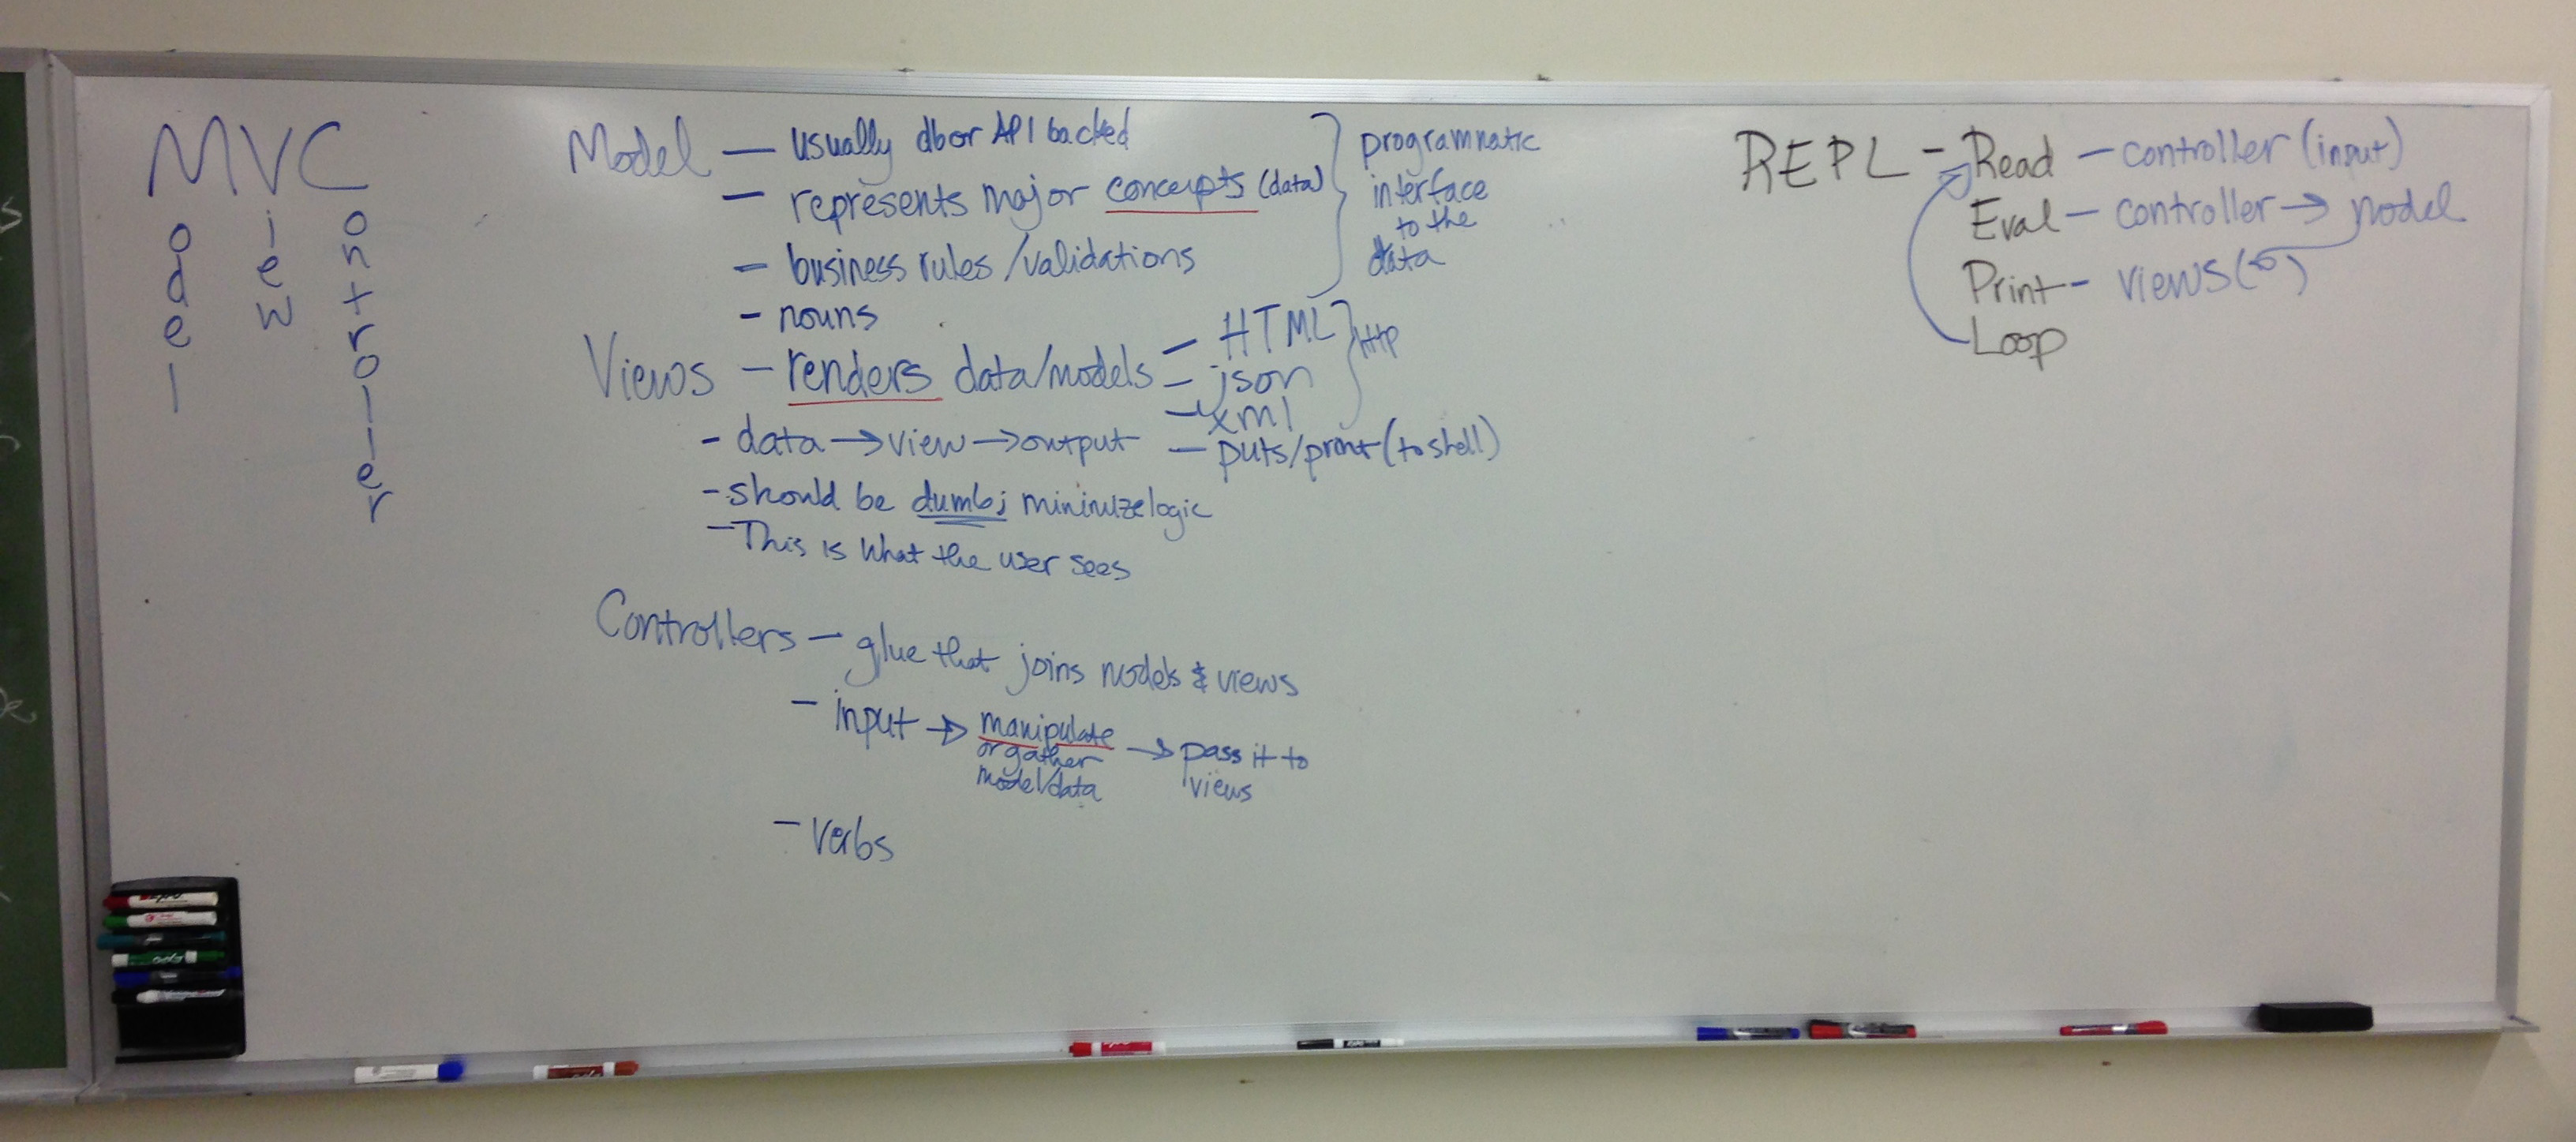 MVC
odel
iew
ontroller
Model — usually db or API backed
— represents major concepts (data)
— business rules/validations
- nouns
programmatic
interface
to the
data
Views — renders data/models
— HTML
— json
— xml
http
— puts/print (to shell)
- data → view → output
- should be dumb; minimize logic
- This is what the user sees
Controllers — glue that joins models & views
- input → manipulate
or gather
model/data
→ pass it to
views
- verbs
REPL - Read — controller (input)
Eval — controller → model
Print - views( )
Loop